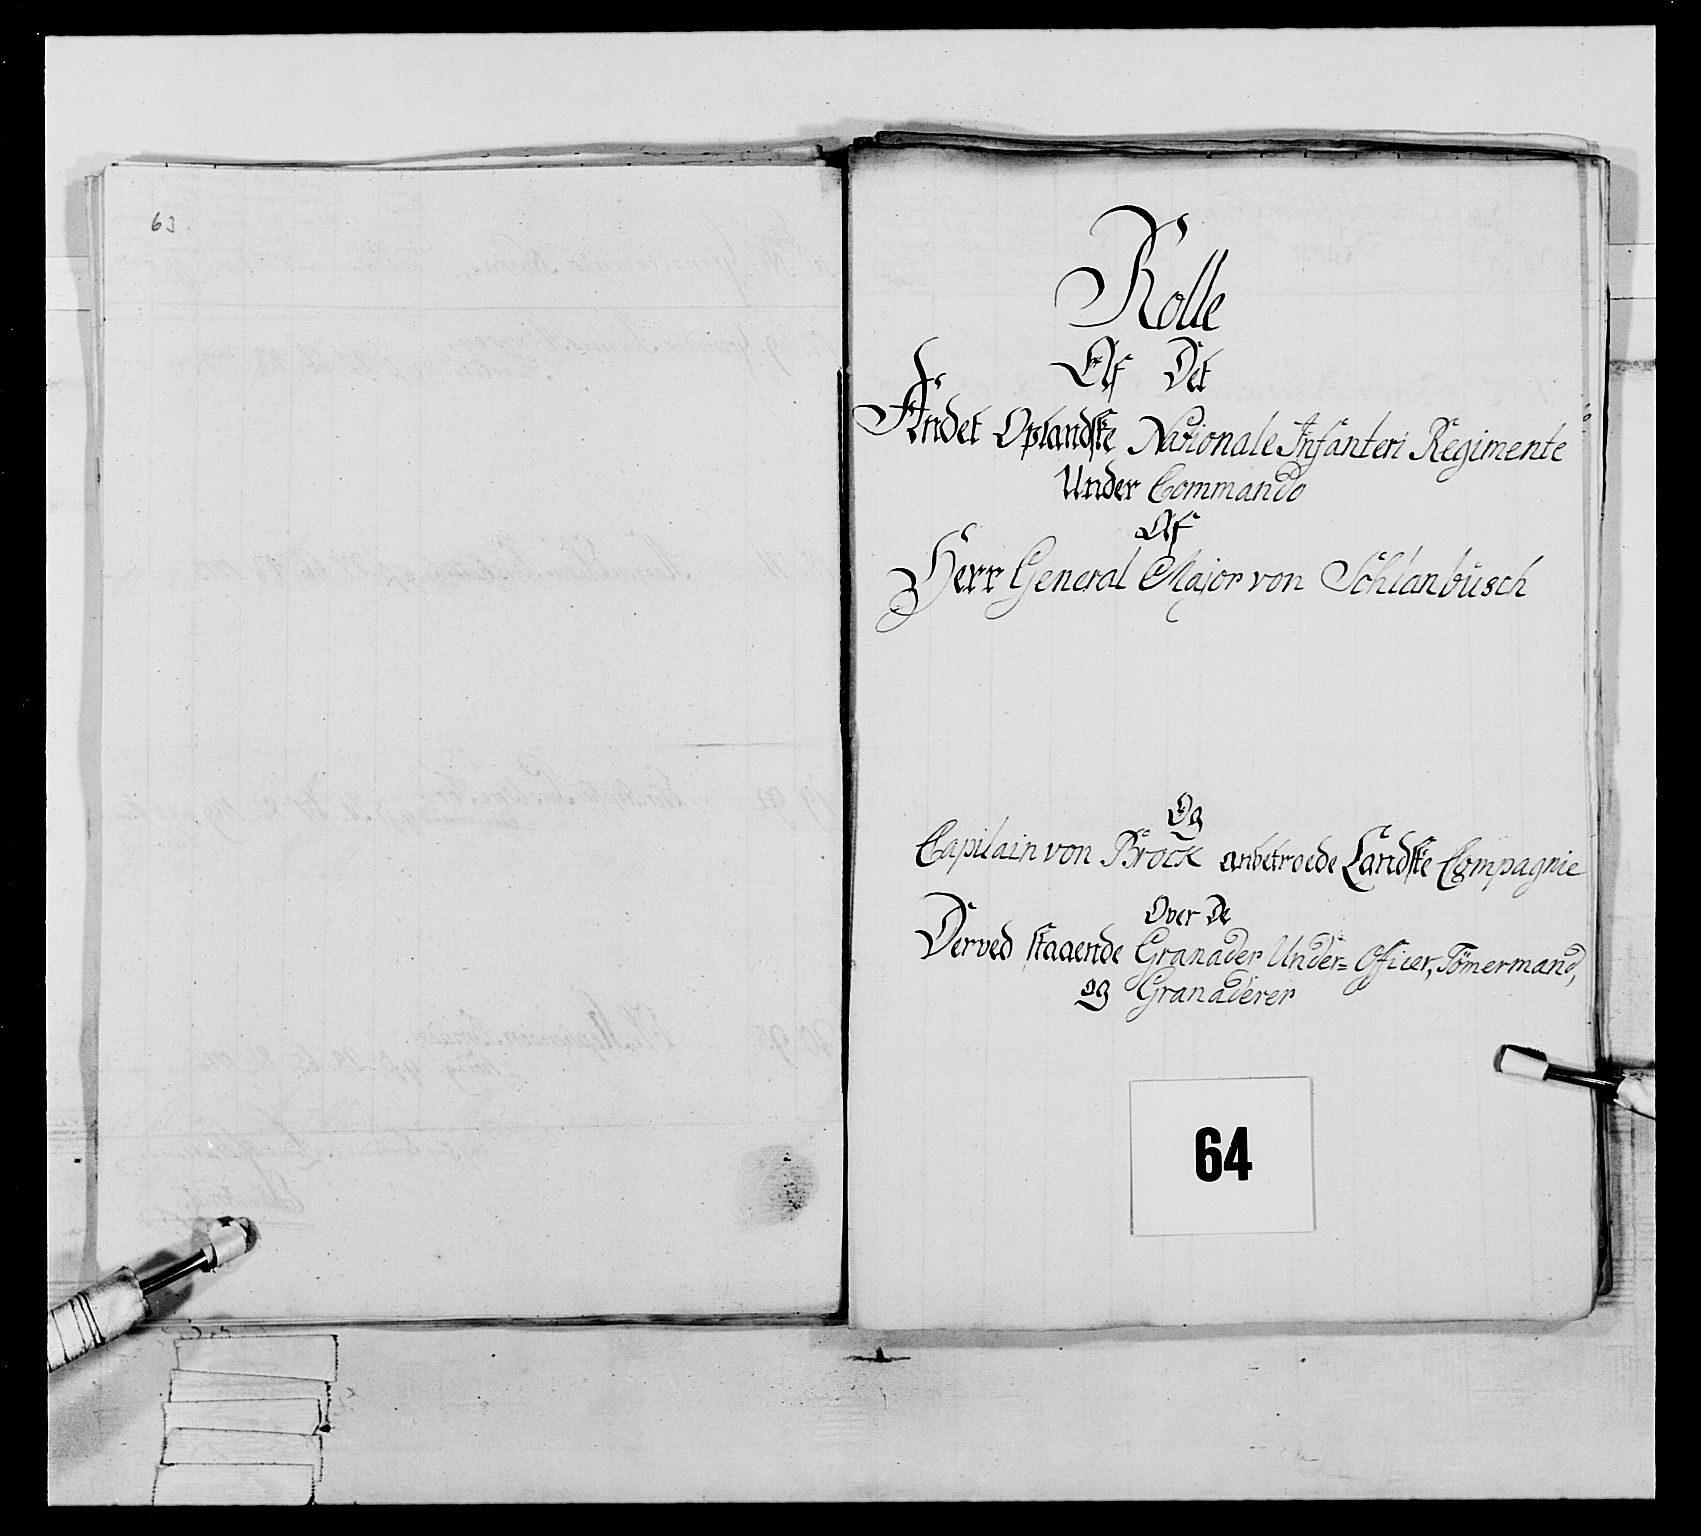 63.
Rolle
Af Det
Andet Oplandske Nationale Infanteri Regimente
Under Commando
Af
Herr General Major von Schlanbüsch
Og
Capitain von Brock anbetroede Landske Compagnie
Over De
Derved staaende Granader Under= Officer, Tömermand,
og Granaderer
64